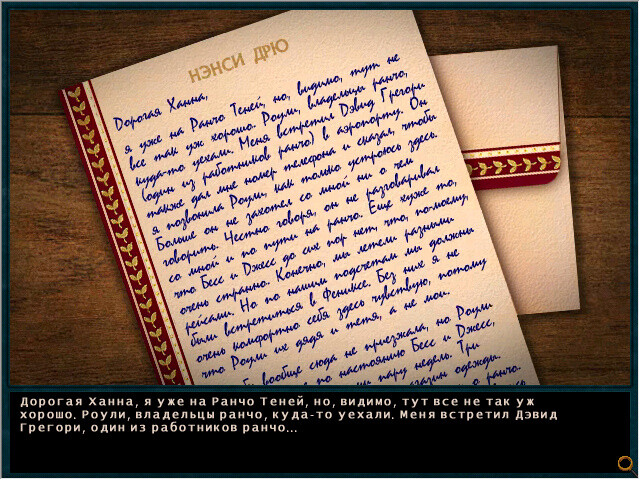 НЭНСИ ДРЮ
Дорогая Ханна,
я уже на Ранчо Теней, но, видимо, тут не
все так уж хорошо. Роули, владельцы ранчо,
куда-то уехали. Меня встретил Дэвид Грегори
(один из работников ранчо) в аэропорту. Он
также дал мне номер телефона и сказал, чтобы
я позвонила Роули, как только устроюсь здесь.
Больше он не захотел со мной ни о чем
говорить. Честно говоря, он не разговаривал
со мной и по пути на ранчо. Еще хуже то,
что Бесс и Джесс до сих пор нет, что, по-моему,
очень странно. Конечно, мы летели разными
рейсами. Но по нашим подсчетам мы должны
были встретиться в Фениксе. Без них я не
очень комфортно себя здесь чувствую, потому
что Роули их дядя и тетя, а не мои.
вообще сюда не приезжала, но Роули
по настоянию Бесс и Джесс,
пару недель. Три
газин одежды.
ранчо.
Дорогая Ханна, я уже на Ранчо Теней, но, видимо, тут все не так уж
хорошо. Роули, владельцы ранчо, куда-то уехали. Меня встретил Дэвид
Грегори, один из работников ранчо...